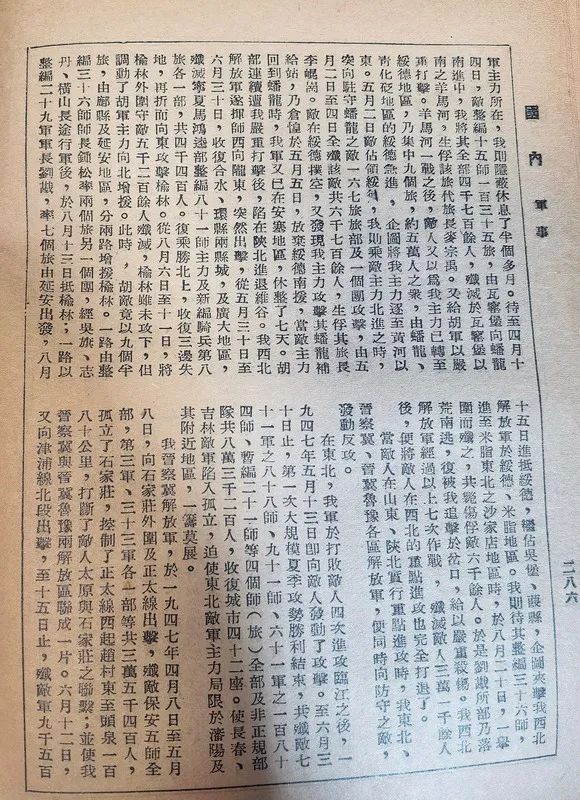 國內 軍事
二八六
軍主力所在，我則隱蔽休息了半個多月。待至四月十
四日，敵整編十五師一百三十五旅，由瓦窰堡向蟠龍
南進中，我將其全部四千七百餘人，殲滅於瓦窰堡以
南之羊馬河，生俘該旅代旅長麥宗禹。又給胡軍以嚴
重打擊。羊馬河一戰之後，敵人又以爲我主力已轉至
綏德地區，乃集中九個旅，約五萬人之衆，由蟠龍、
青化砭地區向綏德急進，企圖將我主力逐至黃河以
東。五月二日敵佔領綏德，我則乘敵主力北進之時，
突向駐守蟠龍之敵一六七旅旅部及一個團攻擊，由五
月二日至四日全殲該敵共六千七百餘人，生俘其旅長
李崐崗。敵在綏德撲空，又發現我主力攻擊其蟠龍補
給站，乃倉惶於五月五日，放棄綏德南援，當敵主力
回到蟠龍時，我軍又已在安塞地區，休整了七天。胡
部連續遭我嚴重打擊後，陷在陝北進退維谷。我西北
解放軍遂揮師西向隴東，突然出擊，從五月三十日至
六月三十日，收復合水、環縣兩縣城，及廣大地區，
殲滅寧夏馬鴻逵部整編八十一師主力及新編騎兵第八
旅各一部，共四千四百人。復乘勝北上，收復三邊失
地，再折而向東攻擊榆林。從八月六日至十一日，將
榆林外圍守敵五千二百餘人殲滅，榆林雖未攻下，但
調動了胡軍主力向北增援。此時，胡敵竟以九個半
旅，由鄜縣及延安地區，分兩路增援榆林。一路由整
編三十六師師長鍾松率兩個旅另一個團，經吳旗、志
丹、橫山長途行軍後，於八月十三日抵榆林；一路以
整編二十九軍軍長劉戡，率七個旅由延安出發，八月
十五日進抵綏德，繼佔吳堡、葭縣，企圖夾擊我西北
解放軍於綏德、米脂地區。我則待其整編三十六師，
進至米脂東北之沙家店地區時，於八月二十日，一舉
圍而殲之，共斃傷俘敵六千餘人。於是劉戡所部乃落
荒南逃，復被我追擊於岔口，給以嚴重殺傷。我西北
解放軍經過以上七次作戰，殲滅敵人三萬一千餘人
後，便將敵人在西北的重點進攻也完全打退了。
當敵人在山東、陝北實行重點進攻時，我東北、
晉察冀、晉冀魯豫各區解放軍，便同時向防守之敵，
發動反攻。
在東北，我軍於打敗敵人四次進攻臨江之後，一
九四七年五月十三日卽向敵人發動了攻擊。至六月三
十日止，第一次大規模夏季攻勢勝利結束，共殲敵七
十一軍之八十八師、九十一師、六十一軍之一百八十
四師、暫編二十一師等四個師（旅）全部及非正規部
隊共八萬三千二百人，收復城市四十二座。使長春、
吉林敵軍陷入孤立，迫使東北敵軍主力局限於瀋陽及
其附近地區，一籌莫展。
我晉察冀解放軍，於一九四七年四月八日至五月
八日，向石家莊外圍及正太線出擊，殲敵保安五師全
部，第三軍、三十三軍各一部等共三萬五千四百人，
孤立了石家莊，控制了正太線西起趙村東至頭泉一百
八十公里，打斷了敵人太原與石家莊之聯繫；並使我
晉察冀與晉冀魯豫兩解放區聯成一片。六月十二日，
又向津浦線北段出擊，至十五日止，殲敵軍九千五百